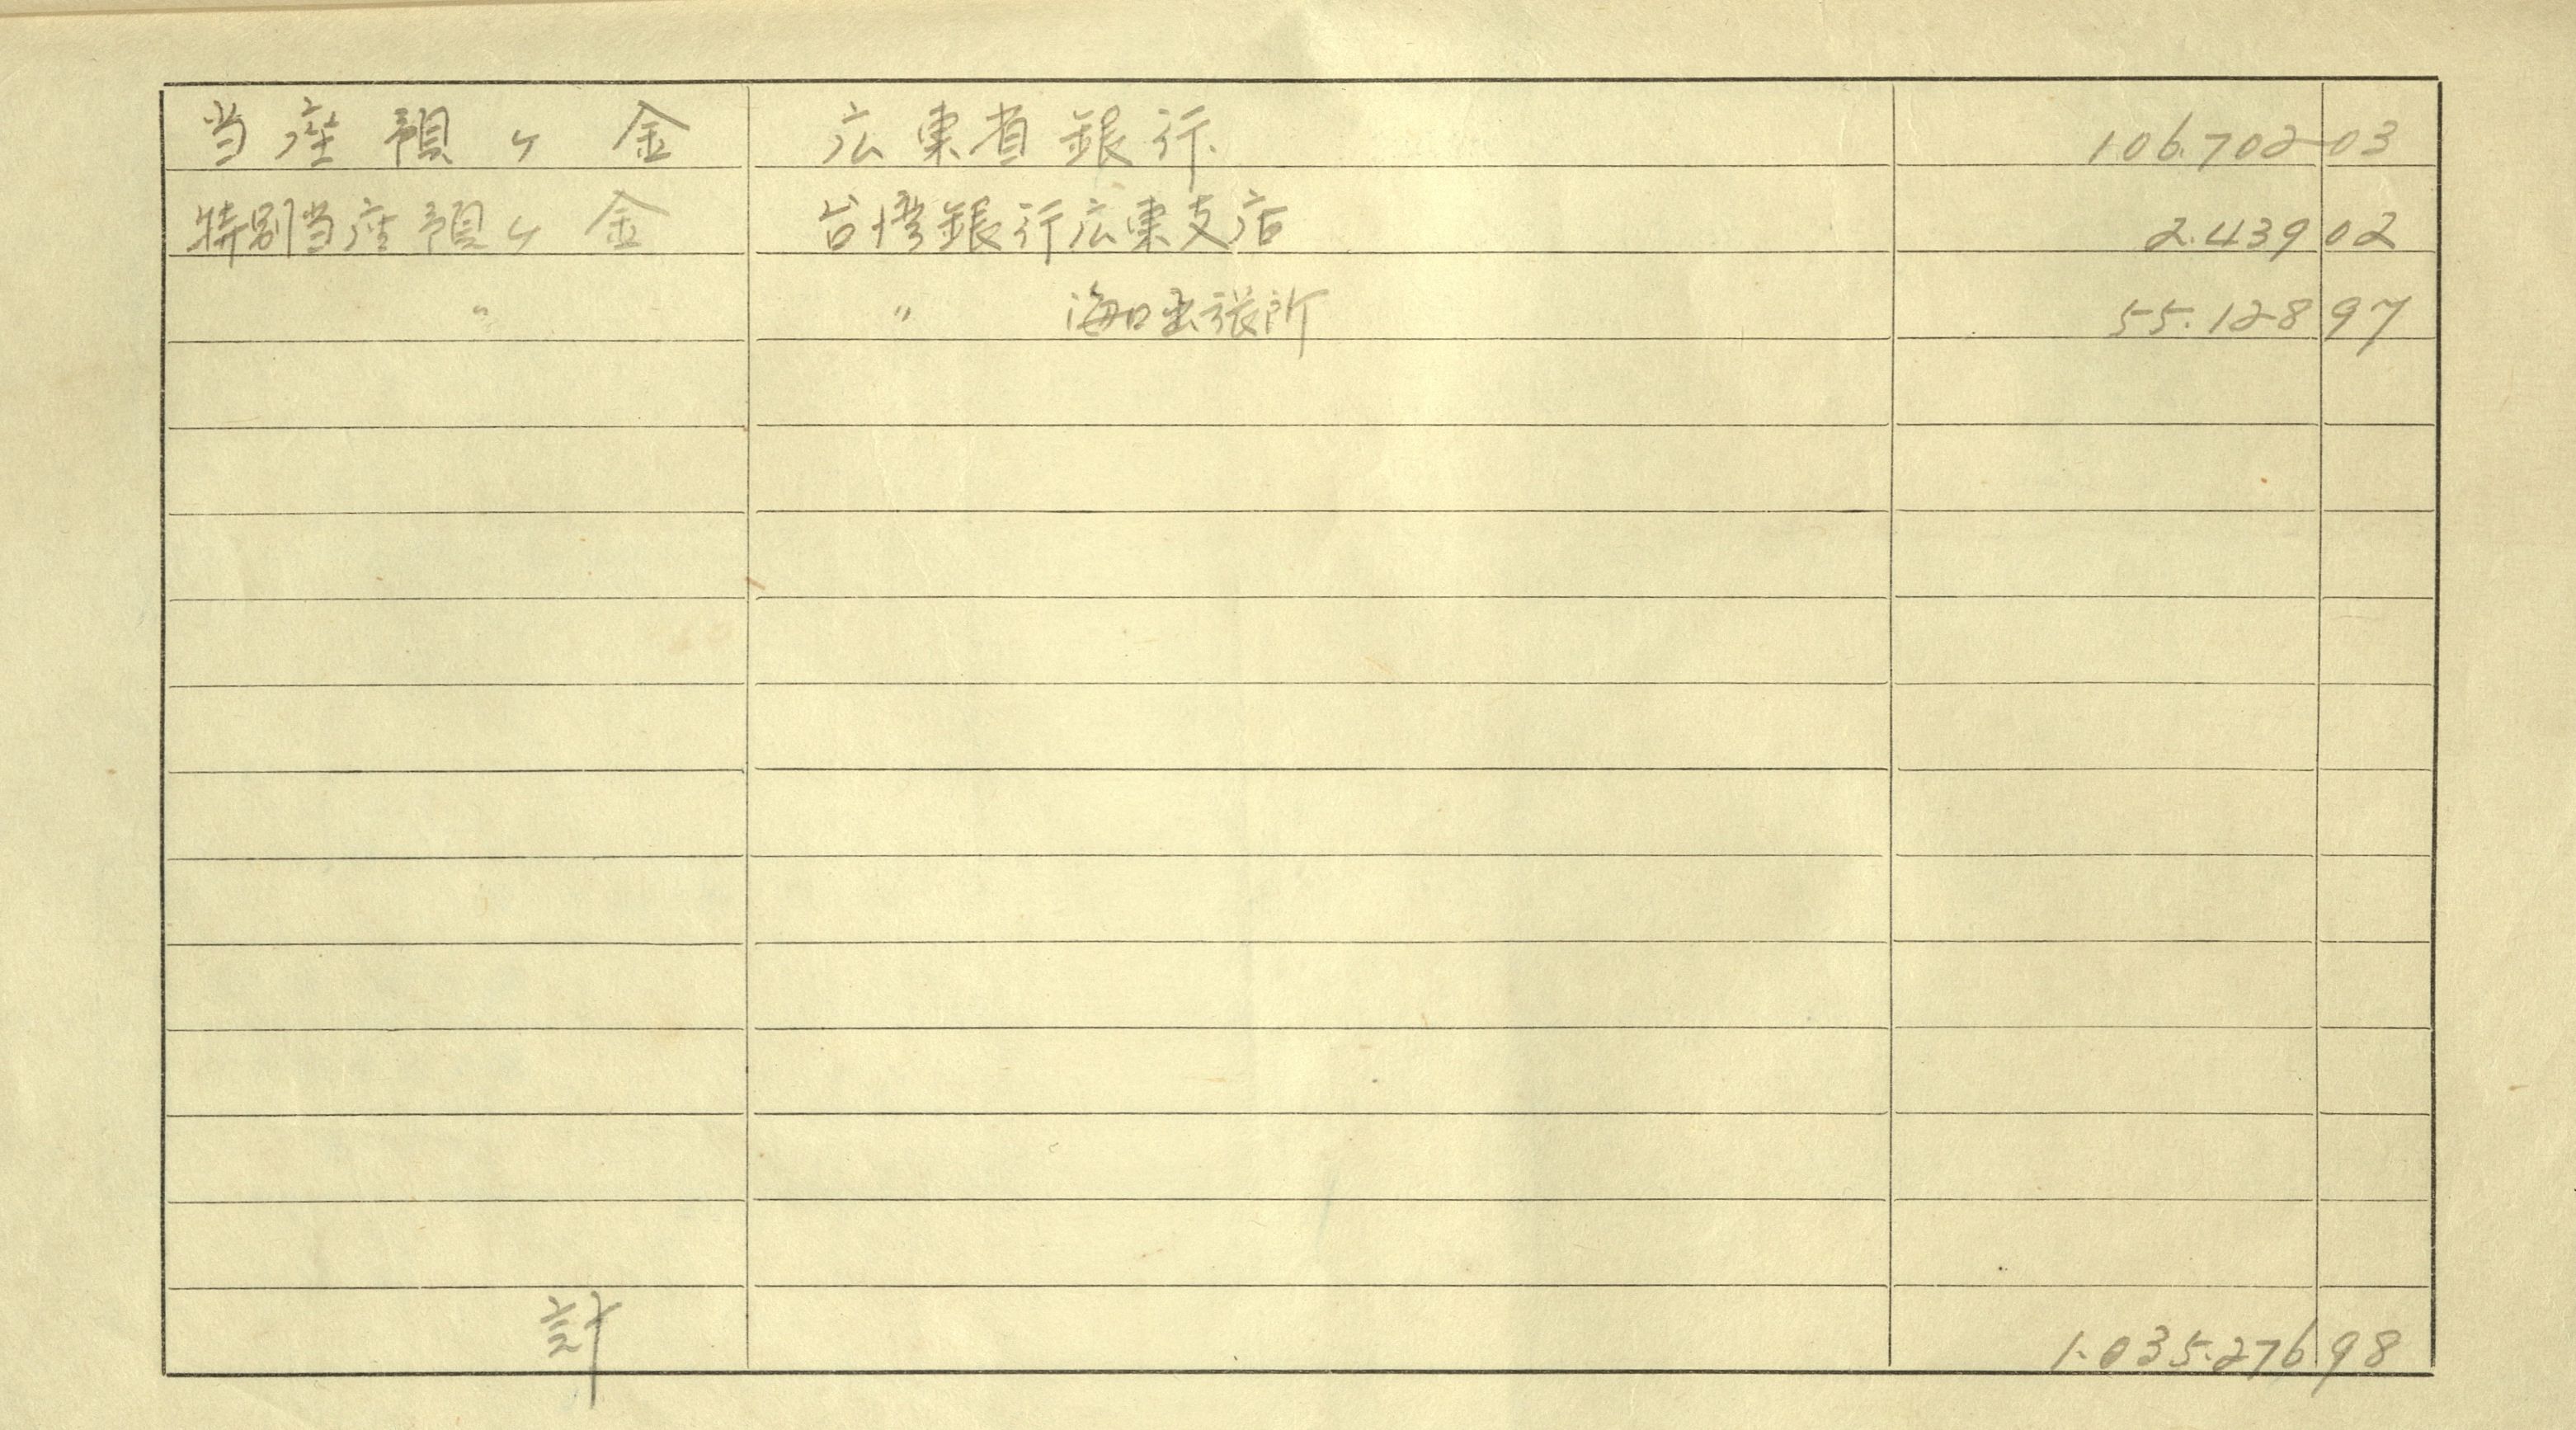 当座預ケ金 広東省銀行 106.702 03
特別当座預ケ金 台湾銀行広東支店 2.439 02
〃 〃 海口出張所 55.128 97
計 1.035.276 98